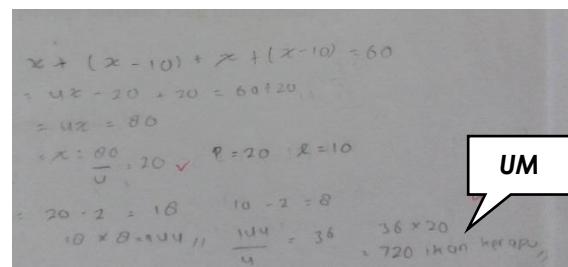 x + (x - 10) + x + (x - 10) = 60
= 4x - 20 + 20 = 60 + 20
= 4x = 80
= x = 80/4 = 20 ✓ P = 20 l = 10
UM
= 20 - 2 = 18 10 - 2 = 8
18 × 8 = 144 // 144/4 = 36 36 × 20
= 720 ikan kerapu //